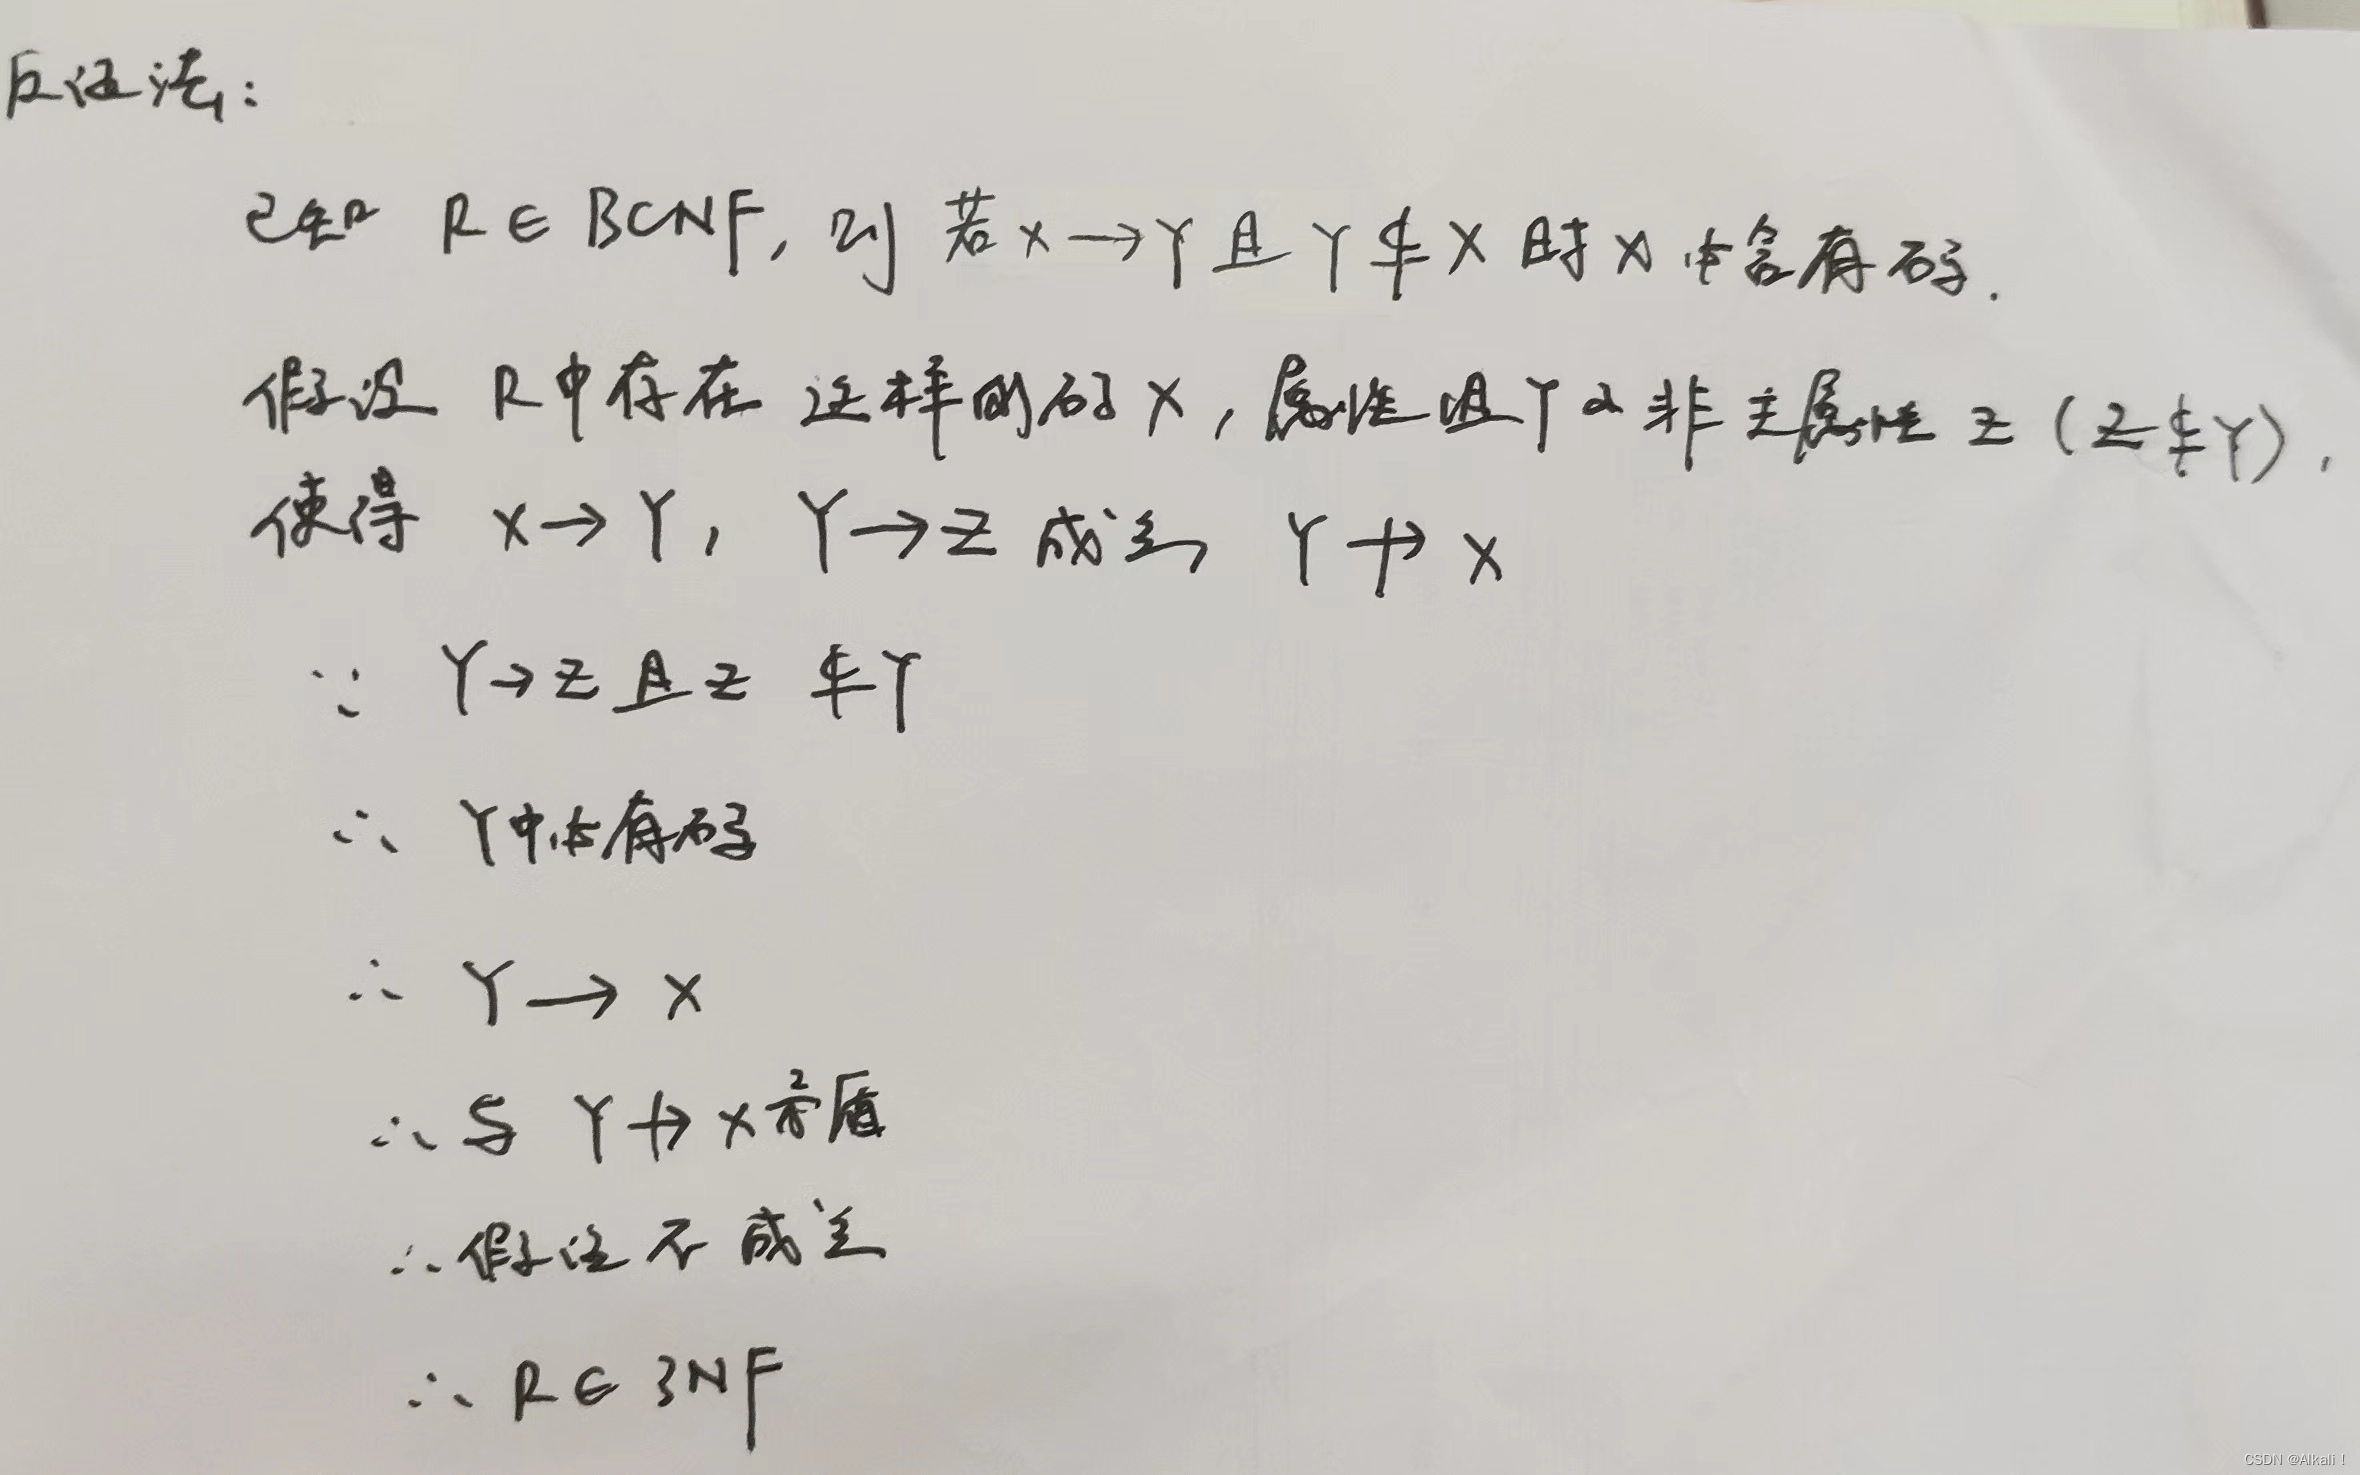 反证法:
已知 R∈BCNF, 则 若X→Y且Y⊈X时X必含有码.
假设 R中存在 这样的码X, 属性组Y及非主属性Z (Z⊈Y),
使得 X→Y, Y→Z 成立, Y↛X
∵ Y→Z且Z ⊈Y
∴ Y中必有码
∴ Y→X
∴ 与 Y↛X矛盾
∴ 假设不成立
∴ R∈3NF
CSDN @Alkali！